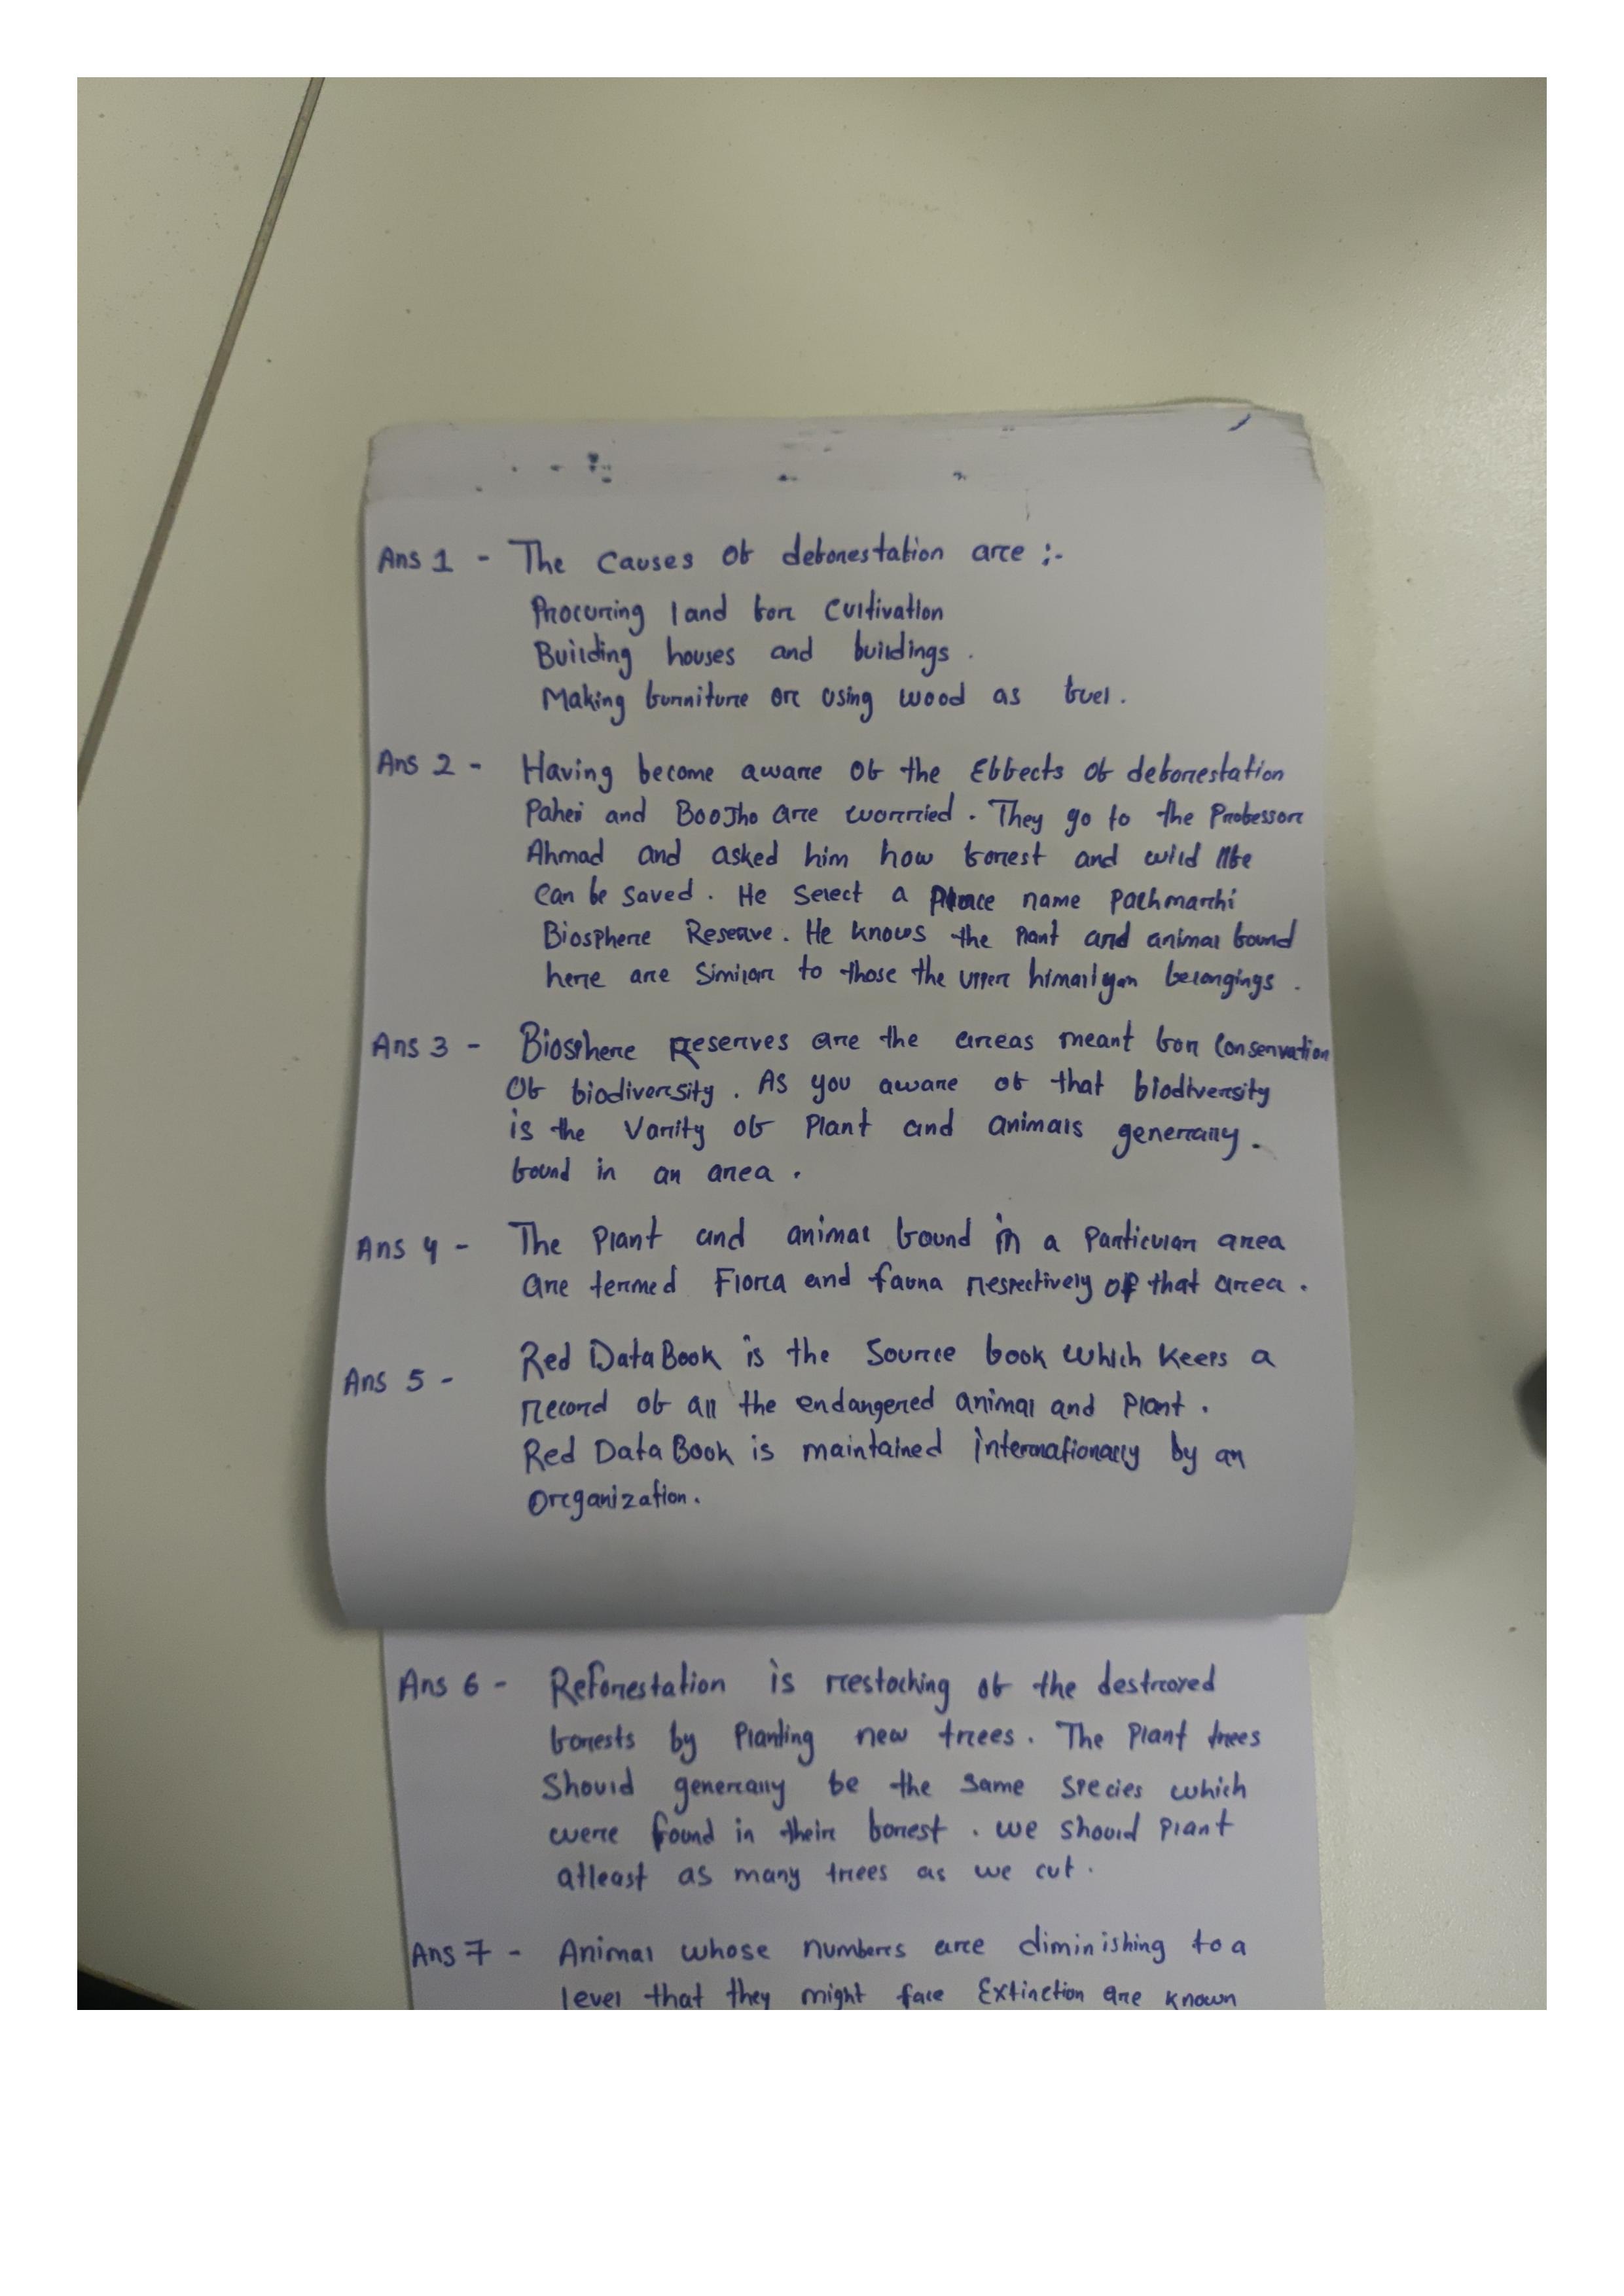 Ans 1 - The Causes of deforestation are :-
Procuring land for Cultivation
Building houses and buildings .
Making furniture or using wood as fuel .
Ans 2 - Having become aware of the Effects of deforestation
Pahei and Boojho are worried . They go to the Professor
Ahmad and asked him how forest and wild life
can be saved . He Select a Place name Pachmarhi
Biosphere Reserve . He knows the Plant and animal found
here are Similar to those the upper himalyan belongings .
Ans 3 - Biosphere Reserves are the areas meant for Conservation
Of biodiversity . As you aware of that biodiversity
is the Varity of Plant and animals generally .
found in an area .
Ans 4 - The Plant and animal found in a Particular area
are termed Flora and fauna respectively of that area .
Ans 5 - Red Data Book is the Source book which keeps a
record of all the endangered animal and Plant .
Red Data Book is maintained internationally by an
Organization .
Ans 6 - Reforestation is restocking of the destroyed
forests by Planting new trees . The Plant trees
Should generally be the Same Species which
were found in their forest . we should Plant
atleast as many trees as we cut .
Ans 7 - Animal whose numbers are diminishing to a
level that they might face Extinction are known